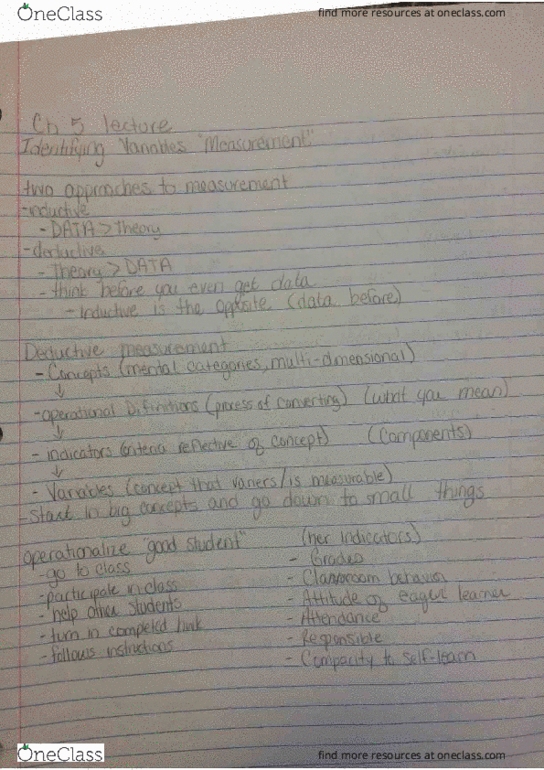 OneClass
find more resources at oneclass.com
Ch 5 lecture
Identifying Variables "Measurement"
two approaches to measurement
-inductive
- DATA > Theory
-deductive
- Theory > DATA
- think before you even get data
- Inductive is the opposite (data before)
Deductive measurement
- Concepts (mental categories, multi-dimensional)
↓
-operational Difinitions (process of converting) (what you mean)
↓
- indicators (criteria reflective of concept) (Components)
↓
- Variables (concept that variers/is measurable)
-Start in big concepts and go down to small things
operationalize "good student"
-go to class
-participate in class
- help other students
- turn in completed
- follows instructions
(her indicators)
- Grades
- Classroom behavior
- Attitude of eager learner
- Attendance
- Responsible
- Compacity to self-learn
OneClass
find more resources at oneclass.com